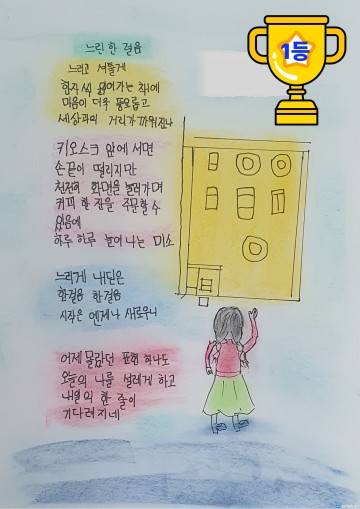 느린 한 걸음
1등
느리고 서툴게
한자씩 읽어가는 책에
마음이 더욱 풍요롭고
세상과의 거리가 가까워진다
키오스크 앞에 서면
손끝이 떨리지만
천천히 화면을 눌러가며
커피 한 잔을 주문할 수
있음에
하루 하루 늘어나는 미소
느리게 내딛은
한걸음 한걸음
시작은 언제나 새로우니
어제 몰랐던 표현 하나도
오늘의 나를 설레게 하고
내일의 한 줄이
기다려지네